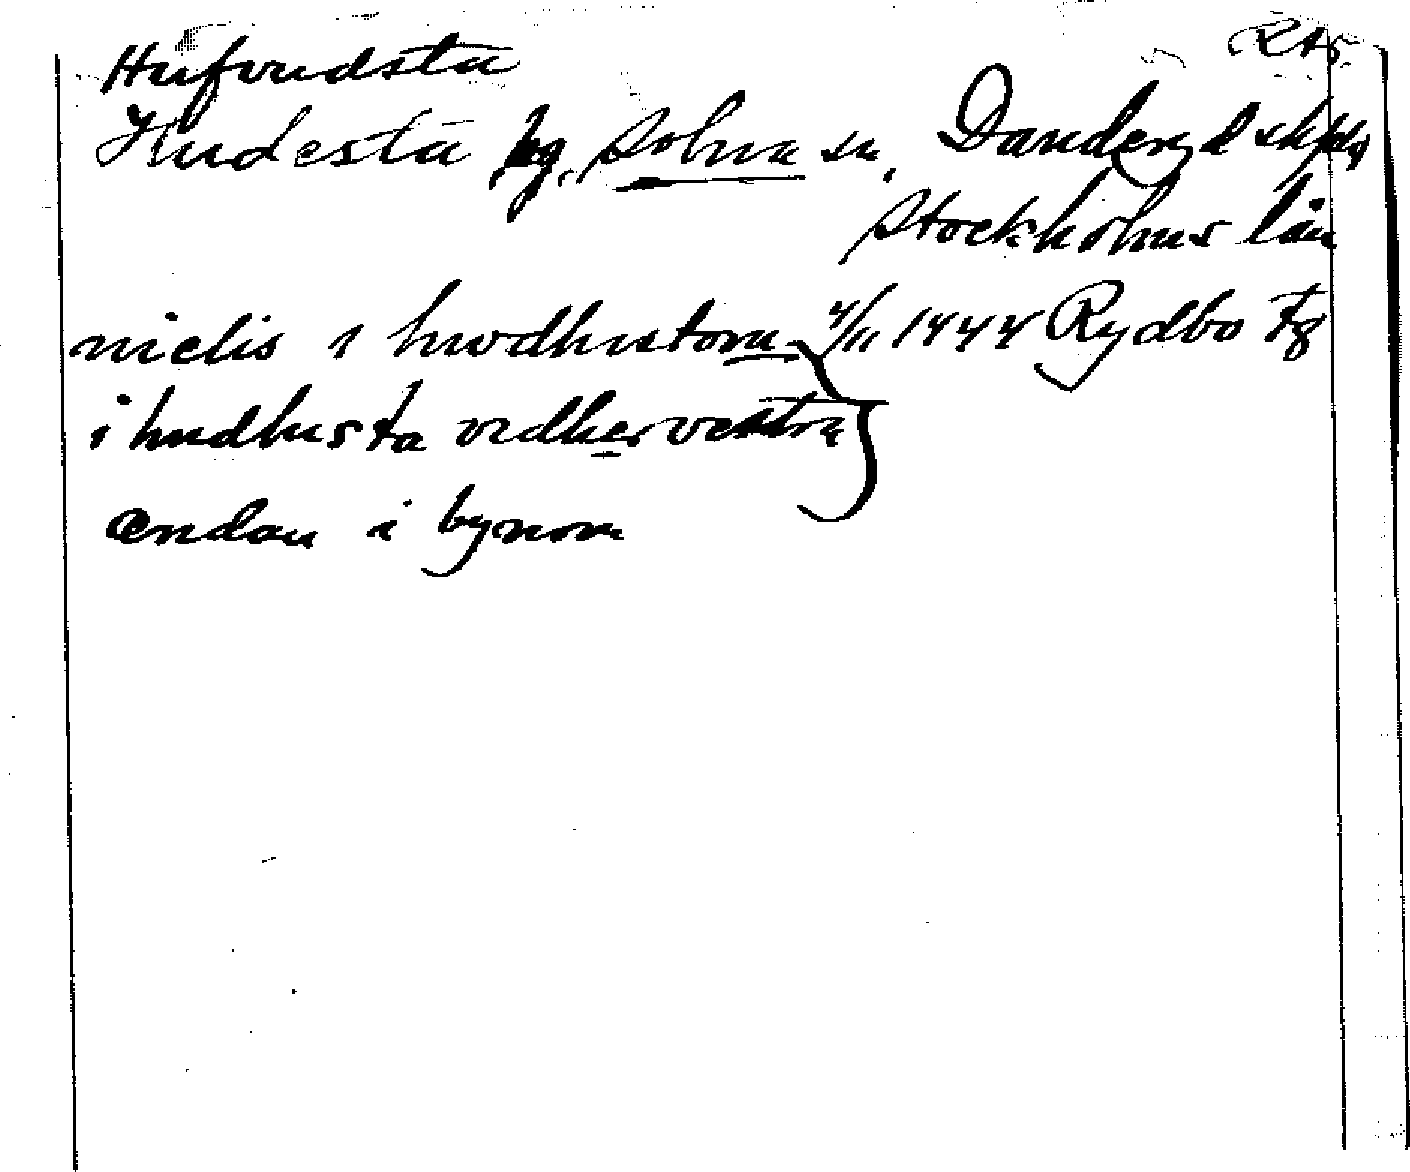 Hufvudsta
Hudesta bg. Solna sn, Danderyd skplg
Stockholms län
nielis i hwdhustom 4/11 1444 Rydbo tg
i hudhusta vidher vestra
ændan i bynom